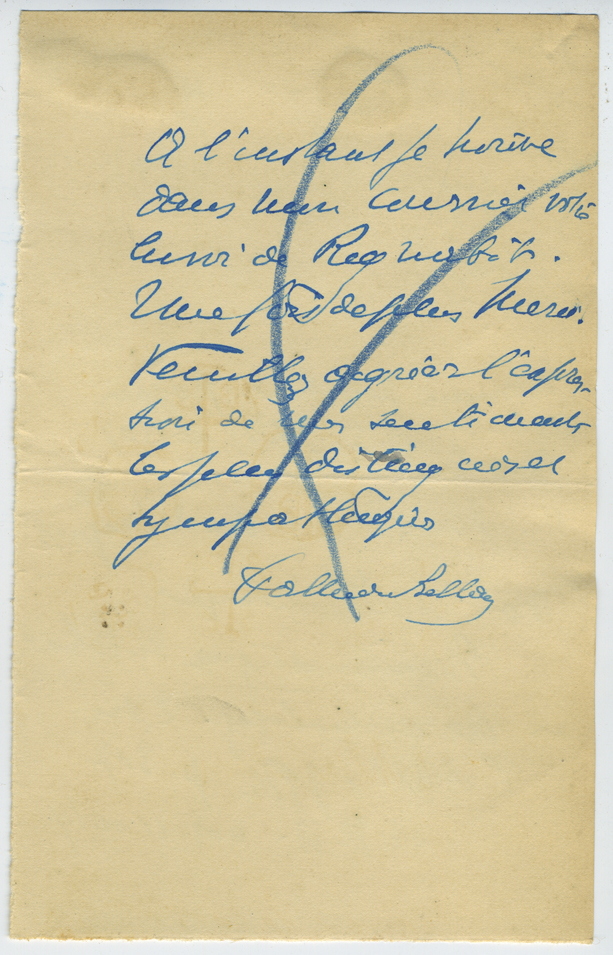 A l'instant je trouve
dans mon courrier votre
envoi de
Une fois de plus merci.
Veuillez agréer l'expres-
sion de mes sentiments
les plus distingués et
sympathiques